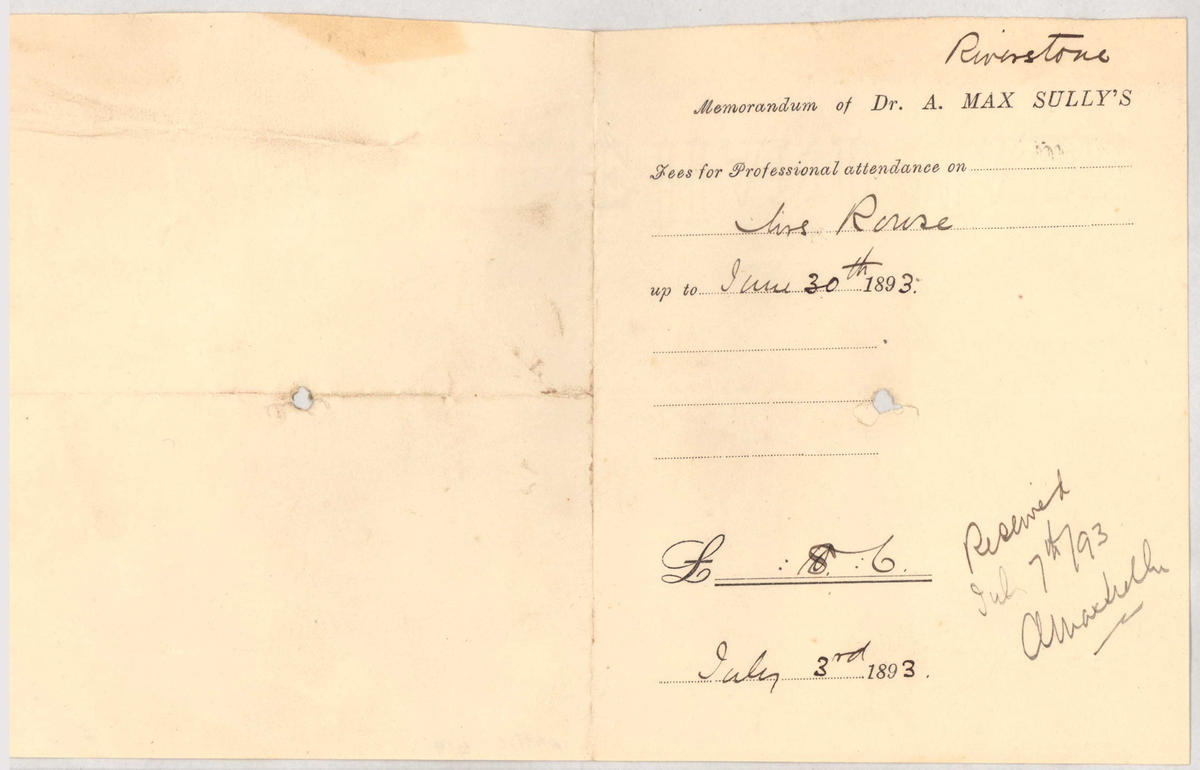 Riverstone
Memorandum of Dr. A. MAX SULLY'S
Fees for Professional attendance on
Mrs Rouse
up to June 30th 1893.
£ : 8 : 6.
Received
July 7th/93
AMaxSully
July 3rd 1893.